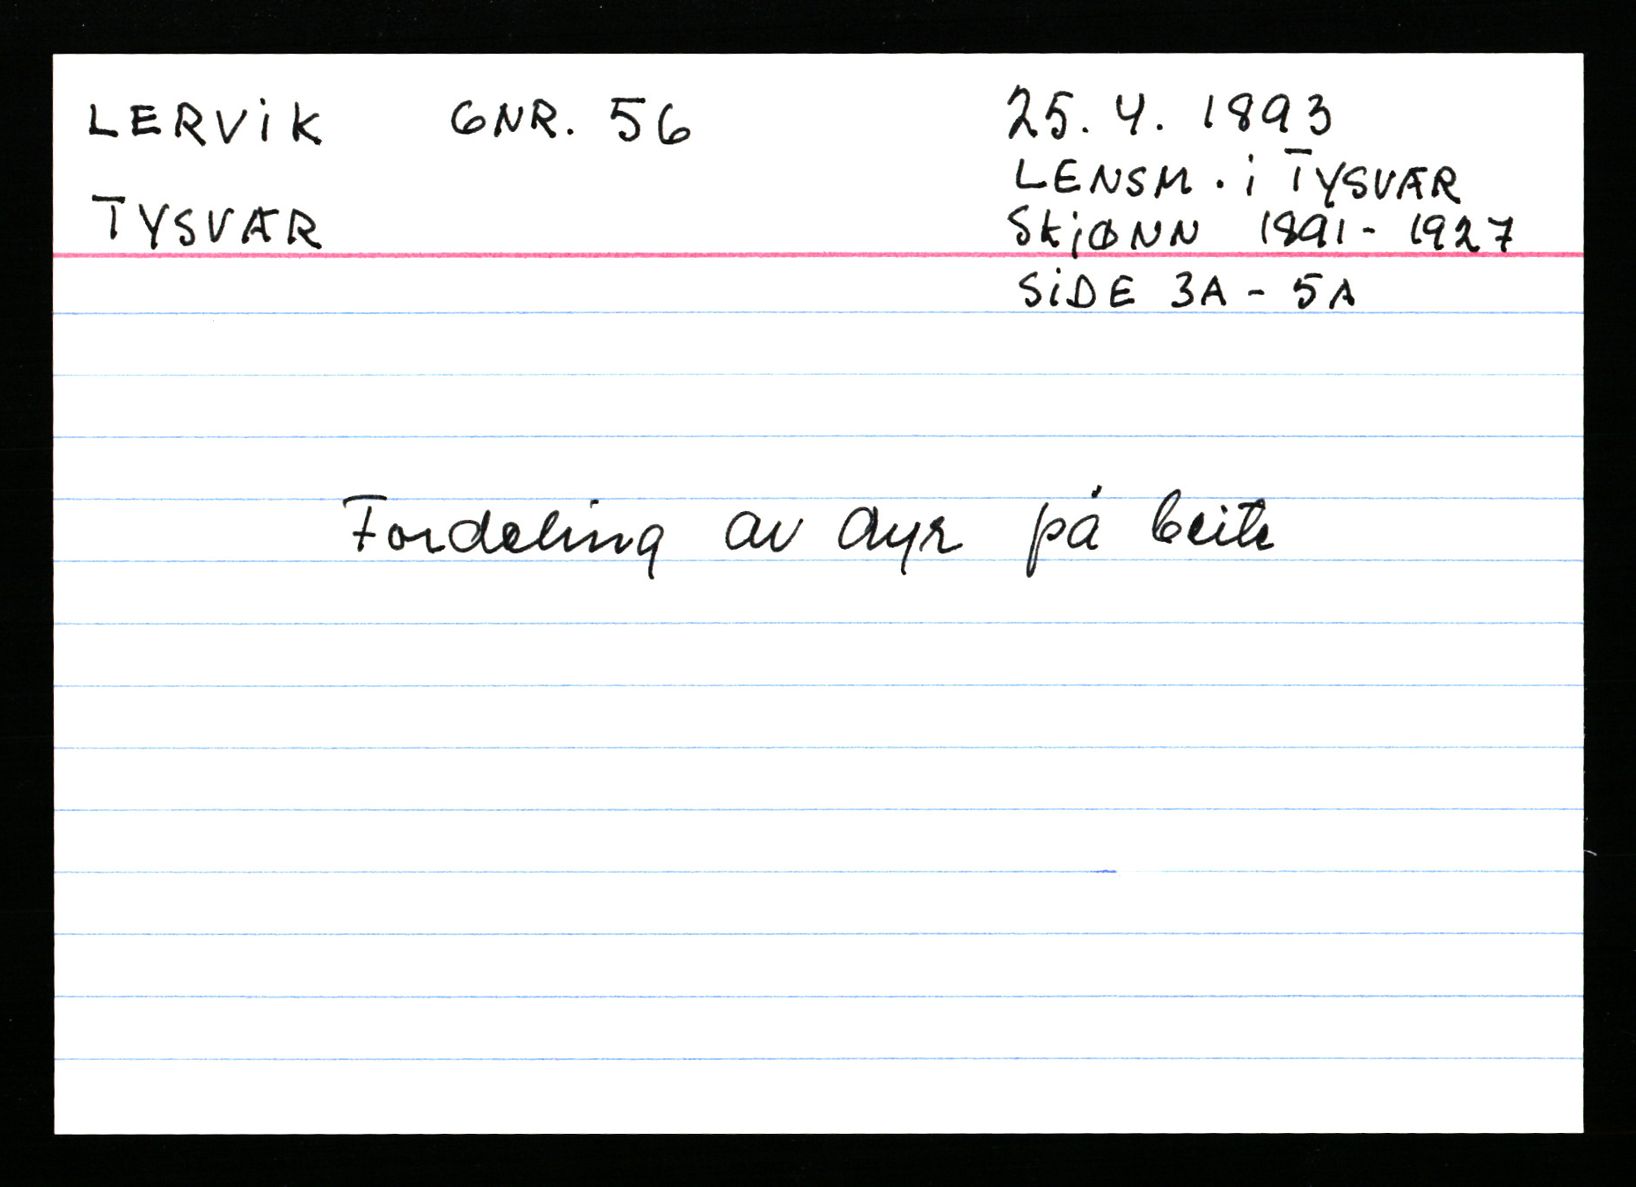 LERVIK GNR. 56
TYSVÆR
25. 4. 1893
LENSM. i TYSVÆR
SKJØNN 1891-1927
SIDE 3A - 5A
Fordeling av dyr på beite